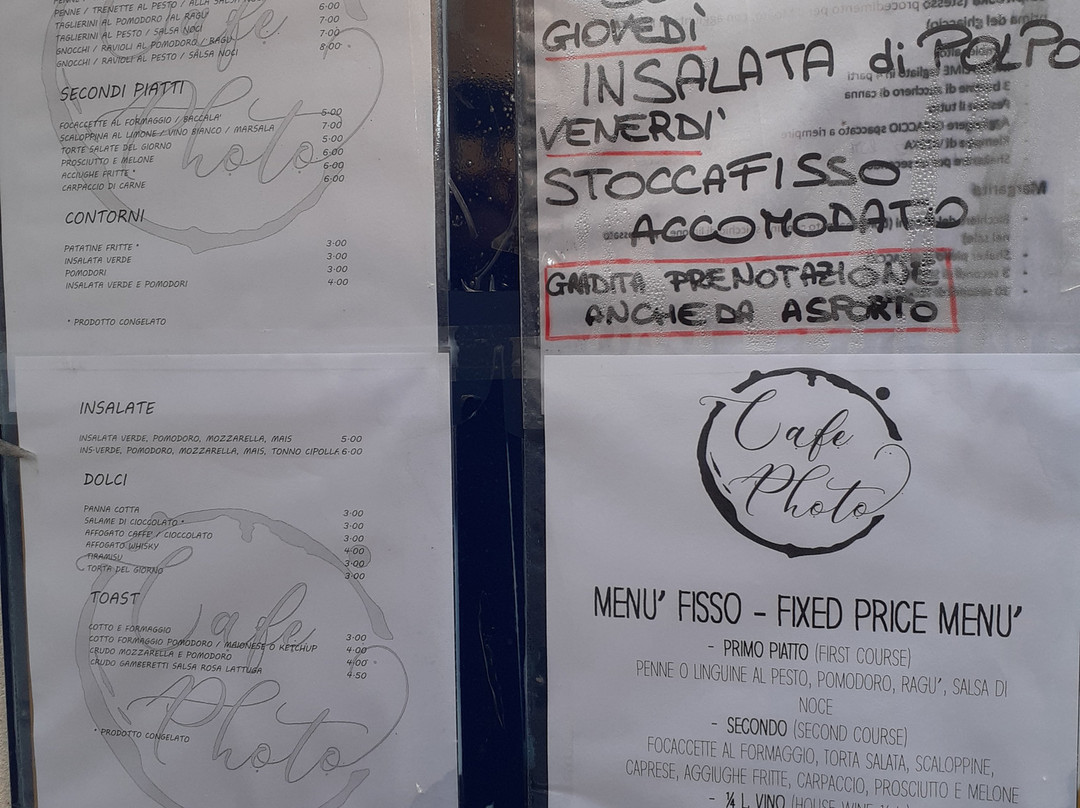 PENNE / TRENETTE AL PESTO / ALLA SALSA NOCI 6·00
TAGLIERINI AL POMODORO /AL RAGU' 7·00
TAGLIERINI AL PESTO / SALSA NOCI 7·00
GNOCCHI / RAVIOLI AL POMODORO / RAGU 8·00
GNOCCHI / RAVIOLI AL PESTO / SALSA NOCI
SECONDI PIATTI
FOCACCETTE AL FORMAGGIO / BACCALA' 5·00
SCALOPPINA AL LIMONE / VINO BIANCO / MARSALA 7·00
TORTE SALATE DEL GIORNO 5·00
PROSCIUTTO E MELONE 6·00
ACCIUGHE FRITTE * 6·00
CARPACCIO DI CARNE 6·00
CONTORNI
PATATINE FRITTE * 3·00
INSALATA VERDE 3·00
POMODORI 3·00
INSALATA VERDE E POMODORI 4·00
* PRODOTTO CONGELATO
INSALATE
INSALATA VERDE, POMODORO, MOZZARELLA, MAIS 5·00
INS·VERDE, POMODORO, MOZZARELLA, MAIS, TONNO CIPOLLA 6·00
DOLCI
PANNA COTTA 3·00
SALAME DI CIOCCOLATO * 3·00
AFFOGATO CAFFE' / CIOCCOLATO 3·00
AFFOGATO WHISKY 4·00
TIRAMISU 3·00
TORTA DEL GIORNO 3·00
TOAST
COTTO E FORMAGGIO 3·00
COTTO FORMAGGIO POMODORO / MAIONESE O KETCHUP 4·00
CRUDO MOZZARELLA E POMODORO 4·00
CRUDO GAMBERETTI SALSA ROSA LATTUGA 4·50
* PRODOTTO CONGELATO
Cafe
Photo
GIOVEDÌ
INSALATA di POLPO
VENERDI'
STOCCAFISSO
ACCOMODATO
GRADITA PRENOTAZIONE
ANCHE DA ASPORTO
Cafe
Photo
MENU' FISSO – FIXED PRICE MENU'
- PRIMO PIATTO (FIRST COURSE)
PENNE O LINGUINE AL PESTO, POMODORO, RAGU', SALSA DI
NOCE
- SECONDO (SECOND COURSE)
FOCACCETTE AL FORMAGGIO, TORTA SALATA, SCALOPPINE,
CAPRESE, AGGIUGHE FRITTE, CARPACCIO, PROSCIUTTO E MELONE
- ¼ L. VINO (HOUSE WINE